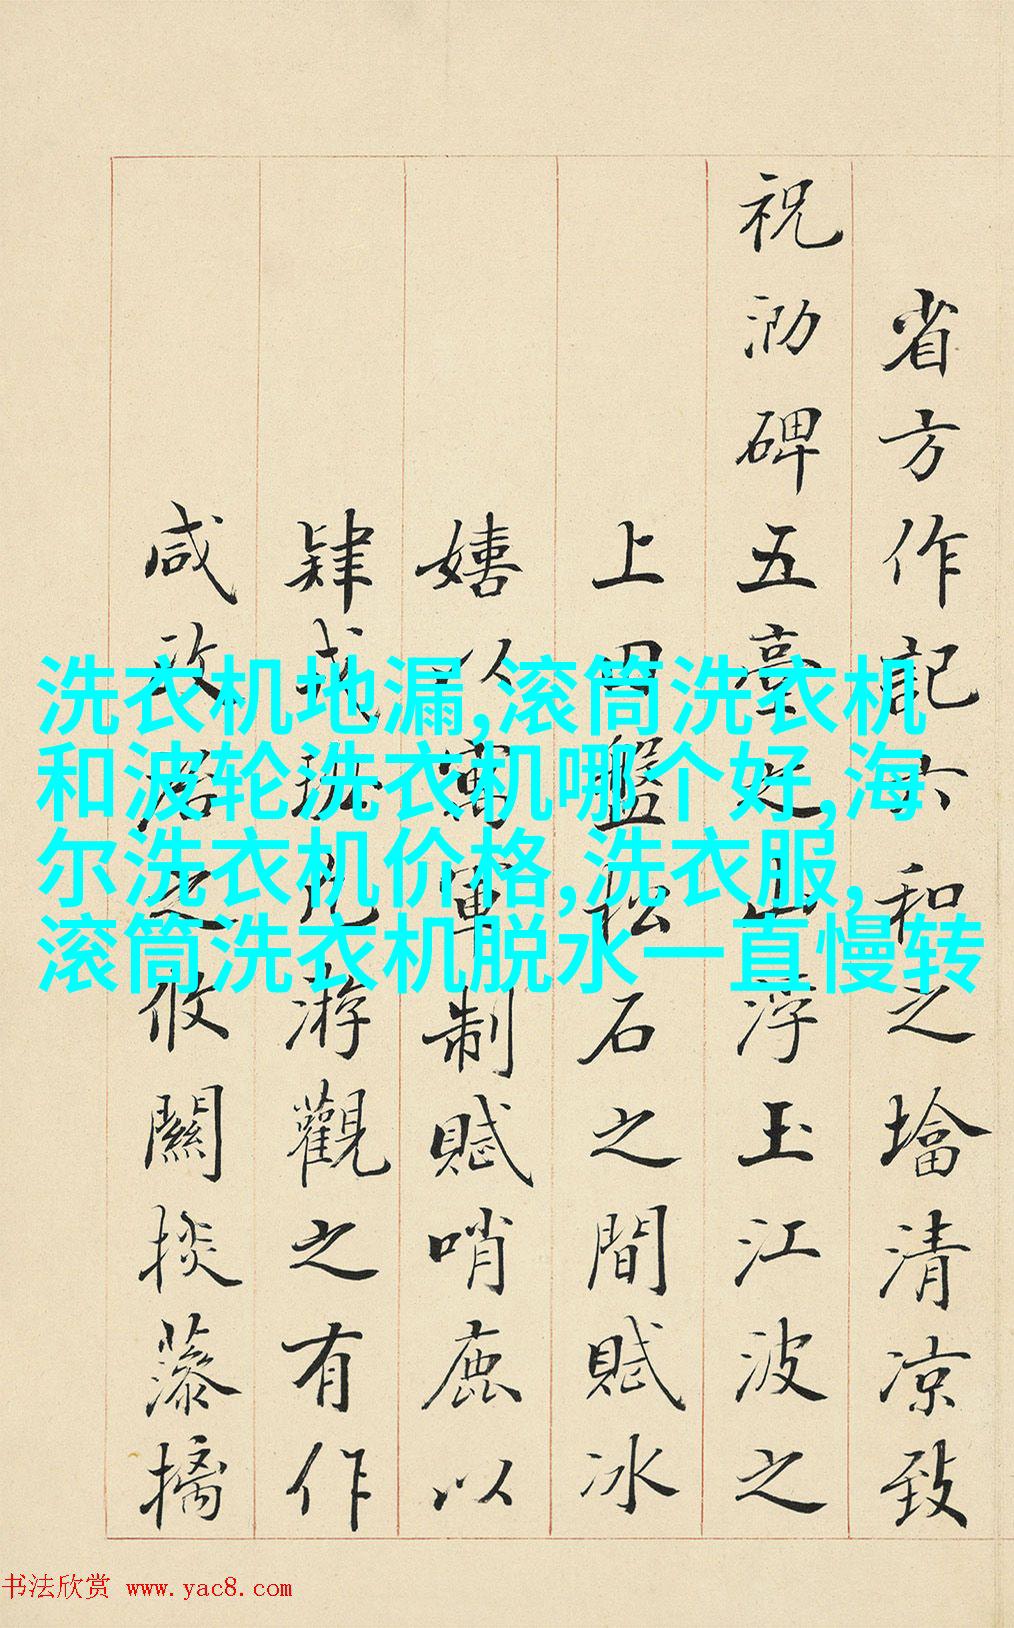 省方作記六和之墖清凉致
祝泐碑五臺之山浮玉江波之
上田盤松石之間賦冰
嬉以寓軍制賦哨鹿以
肄武他游觀之有作
咸攷之攸關掞藻摛
洗衣机地漏,滚筒洗衣机
和波轮洗衣机哪个好,海
尔洗衣机价格,洗衣服,
滚筒洗衣机脱水一直慢转
书法欣赏 www.yac8.com